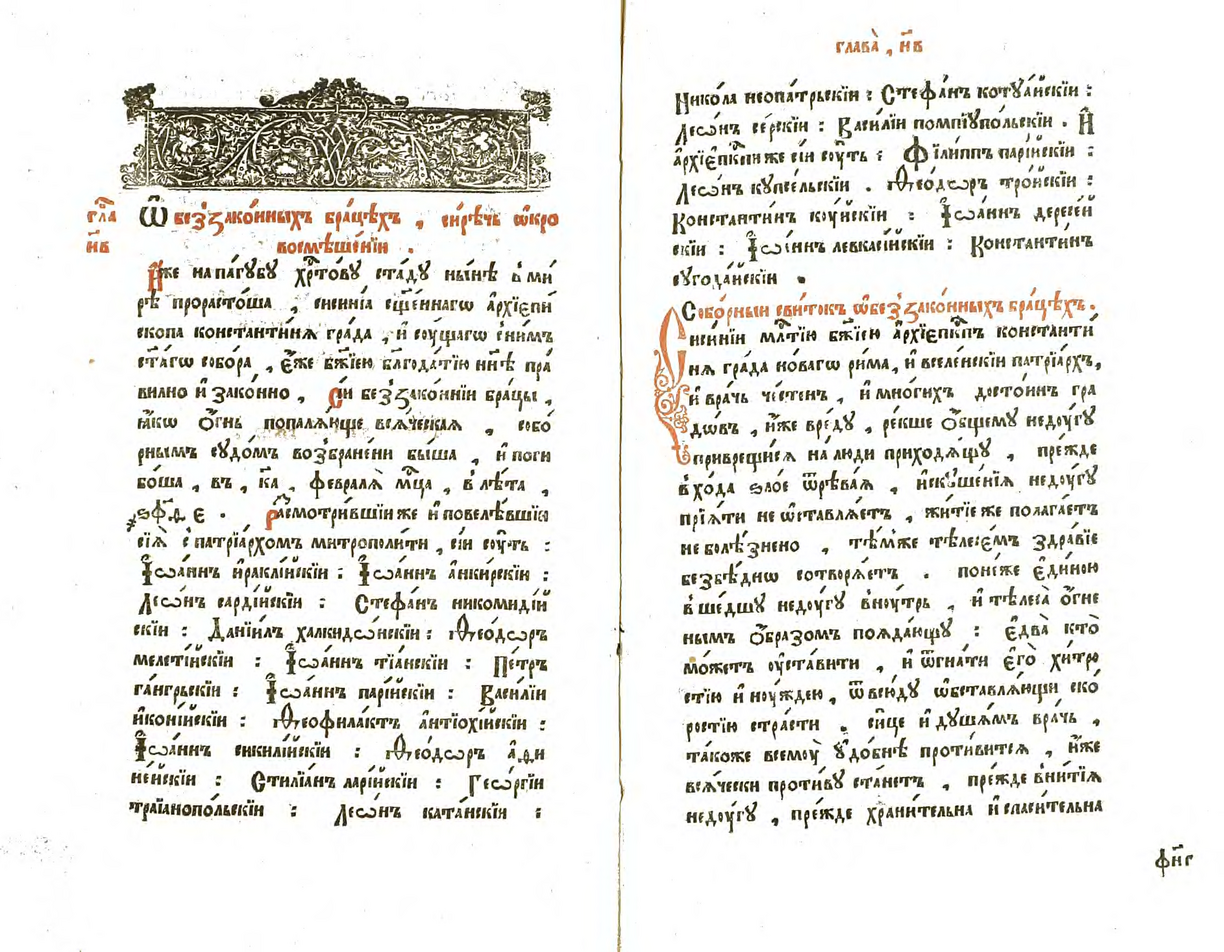 гла҃
н҃в
Ѿ беззако́нныхъ бра́цѣхъ , си́рѣчь ѡ҆кро
восмѣше́нїи .
И҆́же напа́гꙋбꙋ хр҃то́вꙋ ста́дꙋ ны́нѣ в̾ми́
рѣ прорасто́ша , сиси́нїа сщ҃е́ннагѡ а҆рхїепи́
скопа константи́нѧ гра́да , и҆ соу́щагѡ с̾ни́мъ
ст҃а́гѡ собо́ра , є҆́же бж҃їею бл҃года́тїю нн҃ѣ пра́
вилно и҆ зако́нно , Сїи беззако́ннїи бра́цы ,
ꙗ҆́кѡ ѻ҆́гнь попалѧ́юще всѧ́ческаѧ , собо́
рнымъ сꙋдо́мъ возбране́ни бы́ша , и҆ поги
бо́ша , въ , к҃а , февралѧ̀ мц҃а , в̾ лѣ́та ,
҂ѕ҃ф҃д҃ є҃ . Расмотри́вшїи же и҆ повелѣ́вшїѧ
сїѧ̀ с̾ патрїа́рхомъ митрополи́ти , сїи соу́ть :
І҆ѡа́ннъ и҆ракли́йскїи : І҆ѡа́ннъ а҆нки́рскїи :
Леѡ́нъ сарді́йскїи : Стефа́нъ никомиді́й
скїи : Данїи́лъ халкидѡ́нскїи : Ѳео́дѡръ
мелеті́йскїи : І҆ѡа́ннъ тїа́нскїи : Пе́тръ
га́нгрьскїи : І҆ѡа́ннъ парі́йскїи : Васи́лїи
и҆коні́йскїи : Ѳеофила́ктъ а҆нтїохі́йскїи :
І҆ѡа́ннъ сикилі́йскїи : Ѳео́дѡръ а҆ѳи
не́йскїи : Стилїа́нъ ларі́йскїи : Геѡ́ргїи
траїанопо́льскїи : Леѡ́нъ ката́нскїи :
глава̀ , н҃в
Нико́ла неопа́трьскїи : Стефа́нъ котꙋа́йскїи :
Леѡ́нъ се́рскїи : Васи́лїи помпїꙋпо́льскїи . И҆
а҆рхїепк҃пи же сїи соу́ть : Фїли́ппъ парі́йскїи :
Леѡ́нъ кꙋпсе́льскїи . Ѳео́дѡръ тро́йскїи :
Константи́нъ коу́йскїи : І҆ѡа́ннъ дересе́й
скїи : І҆ѡа́ннъ левкасі́йскїи : Константи́нъ
еꙋгода́йскїи .
Собо́рныи сви́токъ ѡ҆беззако́нныхъ бра́цѣхъ .
Сиси́нїи мл҃тїю бж҃їею а҆рхїепк҃пъ константи́
нѧ гра́да но́вагѡ ри́ма , и҆ вселе́нскїи патрїа́рхъ ,
и҆ вра́чь че́стенъ , и҆ мно́гихъ досто́инъ гра
до́въ , и҆́же вре́дꙋ , ре́кше ѻ҆́бщемꙋ недоу́гꙋ
приврещи́сѧ налю́ди приходѧ́щꙋ , пре́жде
в̾хо́да ѕло́е ѿрѣва́ѧ , и҆скꙋше́нїѧ недоу́гꙋ
прїѧ́ти не ѡ҆ставлѧ́етъ , житїе́ же полага́етъ
не болѣ́знено , тѣ́мже тѣлесе́мъ здра́вїе
безбѣ́днѡ сотворѧ́етъ . поне́же є҆ди́ною
в̾ше́дшꙋ недоу́гꙋ вноу́трь , и҆ тѣлеса̀ ѻ҆́гне
ны́мъ ѻ҆́бразомъ поѧда́ющꙋ : є҆два̀ кто̀
мо́жетъ оу҆ста́вити , и҆ ѿгна́ти є҆го̀ хи́тро
стїю и҆ ноу́ждею , ѿвсю́дꙋ ѡ҆бставлѧ́ющи ско́
ростїю стра́сти . си́це и҆ дꙋша́мъ вра́чь ,
та́коже всемоу̀ ᲂу҆до́бнѣ проти́витсѧ , и҆́же
всѧ́чески проти́вꙋ ста́нетъ , пре́жде вни́тїѧ
недоу́гꙋ , пре́жде храни́тельна и҆ спаси́тельна
фн҃г